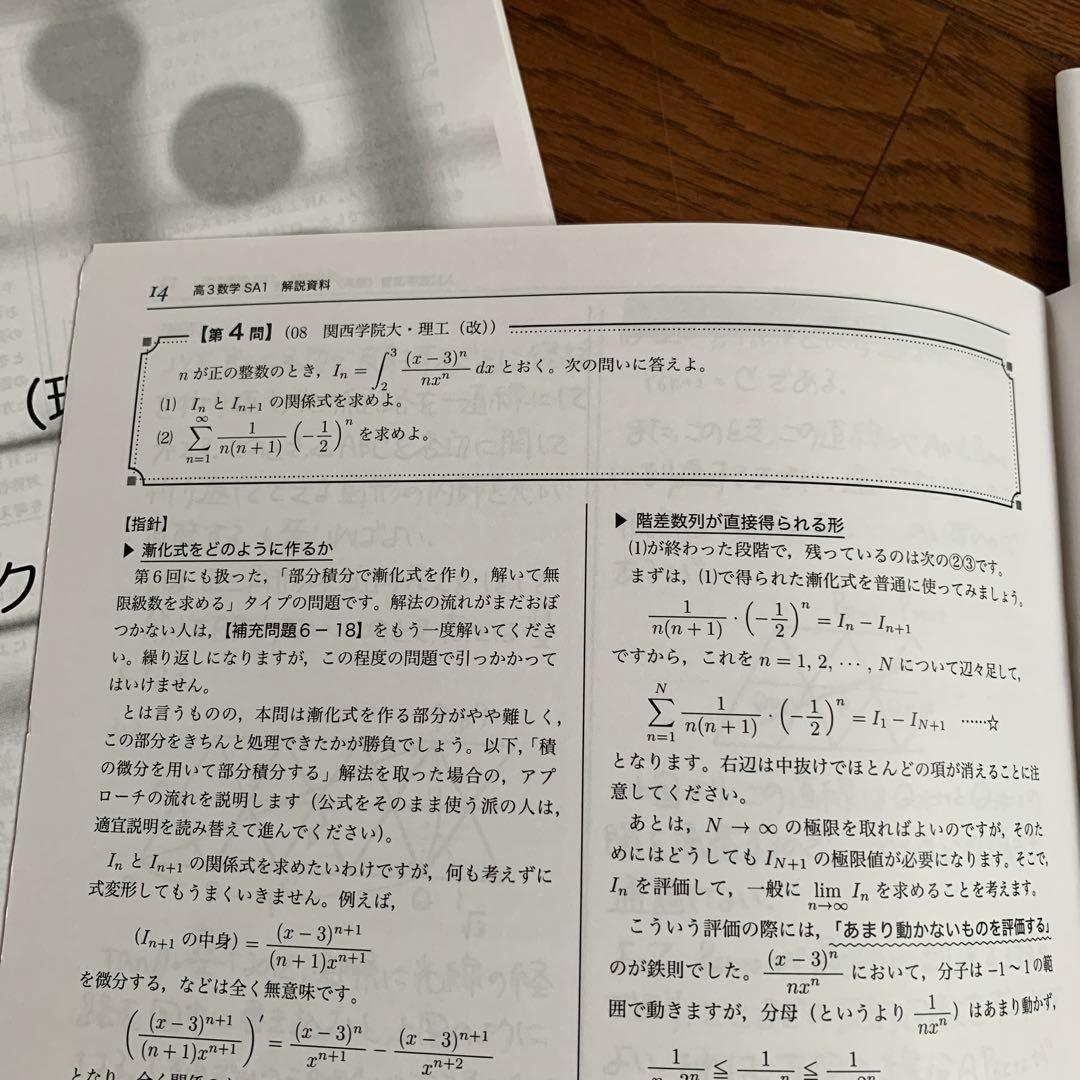 (理
ク
14 高3数学SA1 解説資料
【第4問】(08 関西学院大・理工(改))
n が正の整数のとき, I_n = ∫_2^3 (x−3)^n/(nx^n) dx とおく。次の問いに答えよ。
(1) I_n と I_{n+1} の関係式を求めよ。
(2) ∑_{n=1}^∞ 1/(n(n+1)) (−1/2)^n を求めよ。
【指針】
▶ 漸化式をどのように作るか
第6回にも扱った,「部分積分で漸化式を作り, 解いて無
限級数を求める」タイプの問題です。解法の流れがまだおぼ
つかない人は,【補充問題6−18】をもう一度解いてくださ
い。繰り返しになりますが, この程度の問題で引っかかって
はいけません。
とは言うものの, 本問は漸化式を作る部分がやや難しく,
この部分をきちんと処理できたかが勝負でしょう。以下,「積
の微分を用いて部分積分する」解法を取った場合の, アプ
ローチの流れを説明します(公式をそのまま使う派の人は,
適宜説明を読み替えて進んでください)。
I_n と I_{n+1} の関係式を求めたいわけですが, 何も考えずに
式変形してもうまくいきません。例えば,
(I_{n+1} の中身) = (x−3)^{n+1}/((n+1)x^{n+1})
を微分する, などは全く無意味です。
((x−3)^{n+1}/((n+1)x^{n+1}))′ = (x−3)^n/x^{n+1} − (x−3)^{n+1}/x^{n+2}
となり,
▶ 階差数列が直接得られる形
(1)が終わった段階で, 残っているのは次の②③です。
まずは, (1)で得られた漸化式を普通に使ってみましょう。
1/(n(n+1)) · (−1/2)^n = I_n − I_{n+1}
ですから, これを n = 1, 2, ⋯, N について辺々足して,
∑_{n=1}^N 1/(n(n+1)) · (−1/2)^n = I_1 − I_{N+1} ……☆
となります。右辺は中抜けでほとんどの項が消えることに注
意してください。
あとは, N → ∞ の極限を取ればよいのですが, そのた
めにはどうしても I_{N+1} の極限値が必要になります。そこで,
I_n を評価して, 一般に lim_{n→∞} I_n を求めることを考えます。
こういう評価の際には,「あまり動かないものを評価する」
のが鉄則でした。(x−3)^n/(nx^n) において, 分子は −1〜1 の範
囲で動きますが, 分母(というより 1/(nx^n))はあまり動かず,